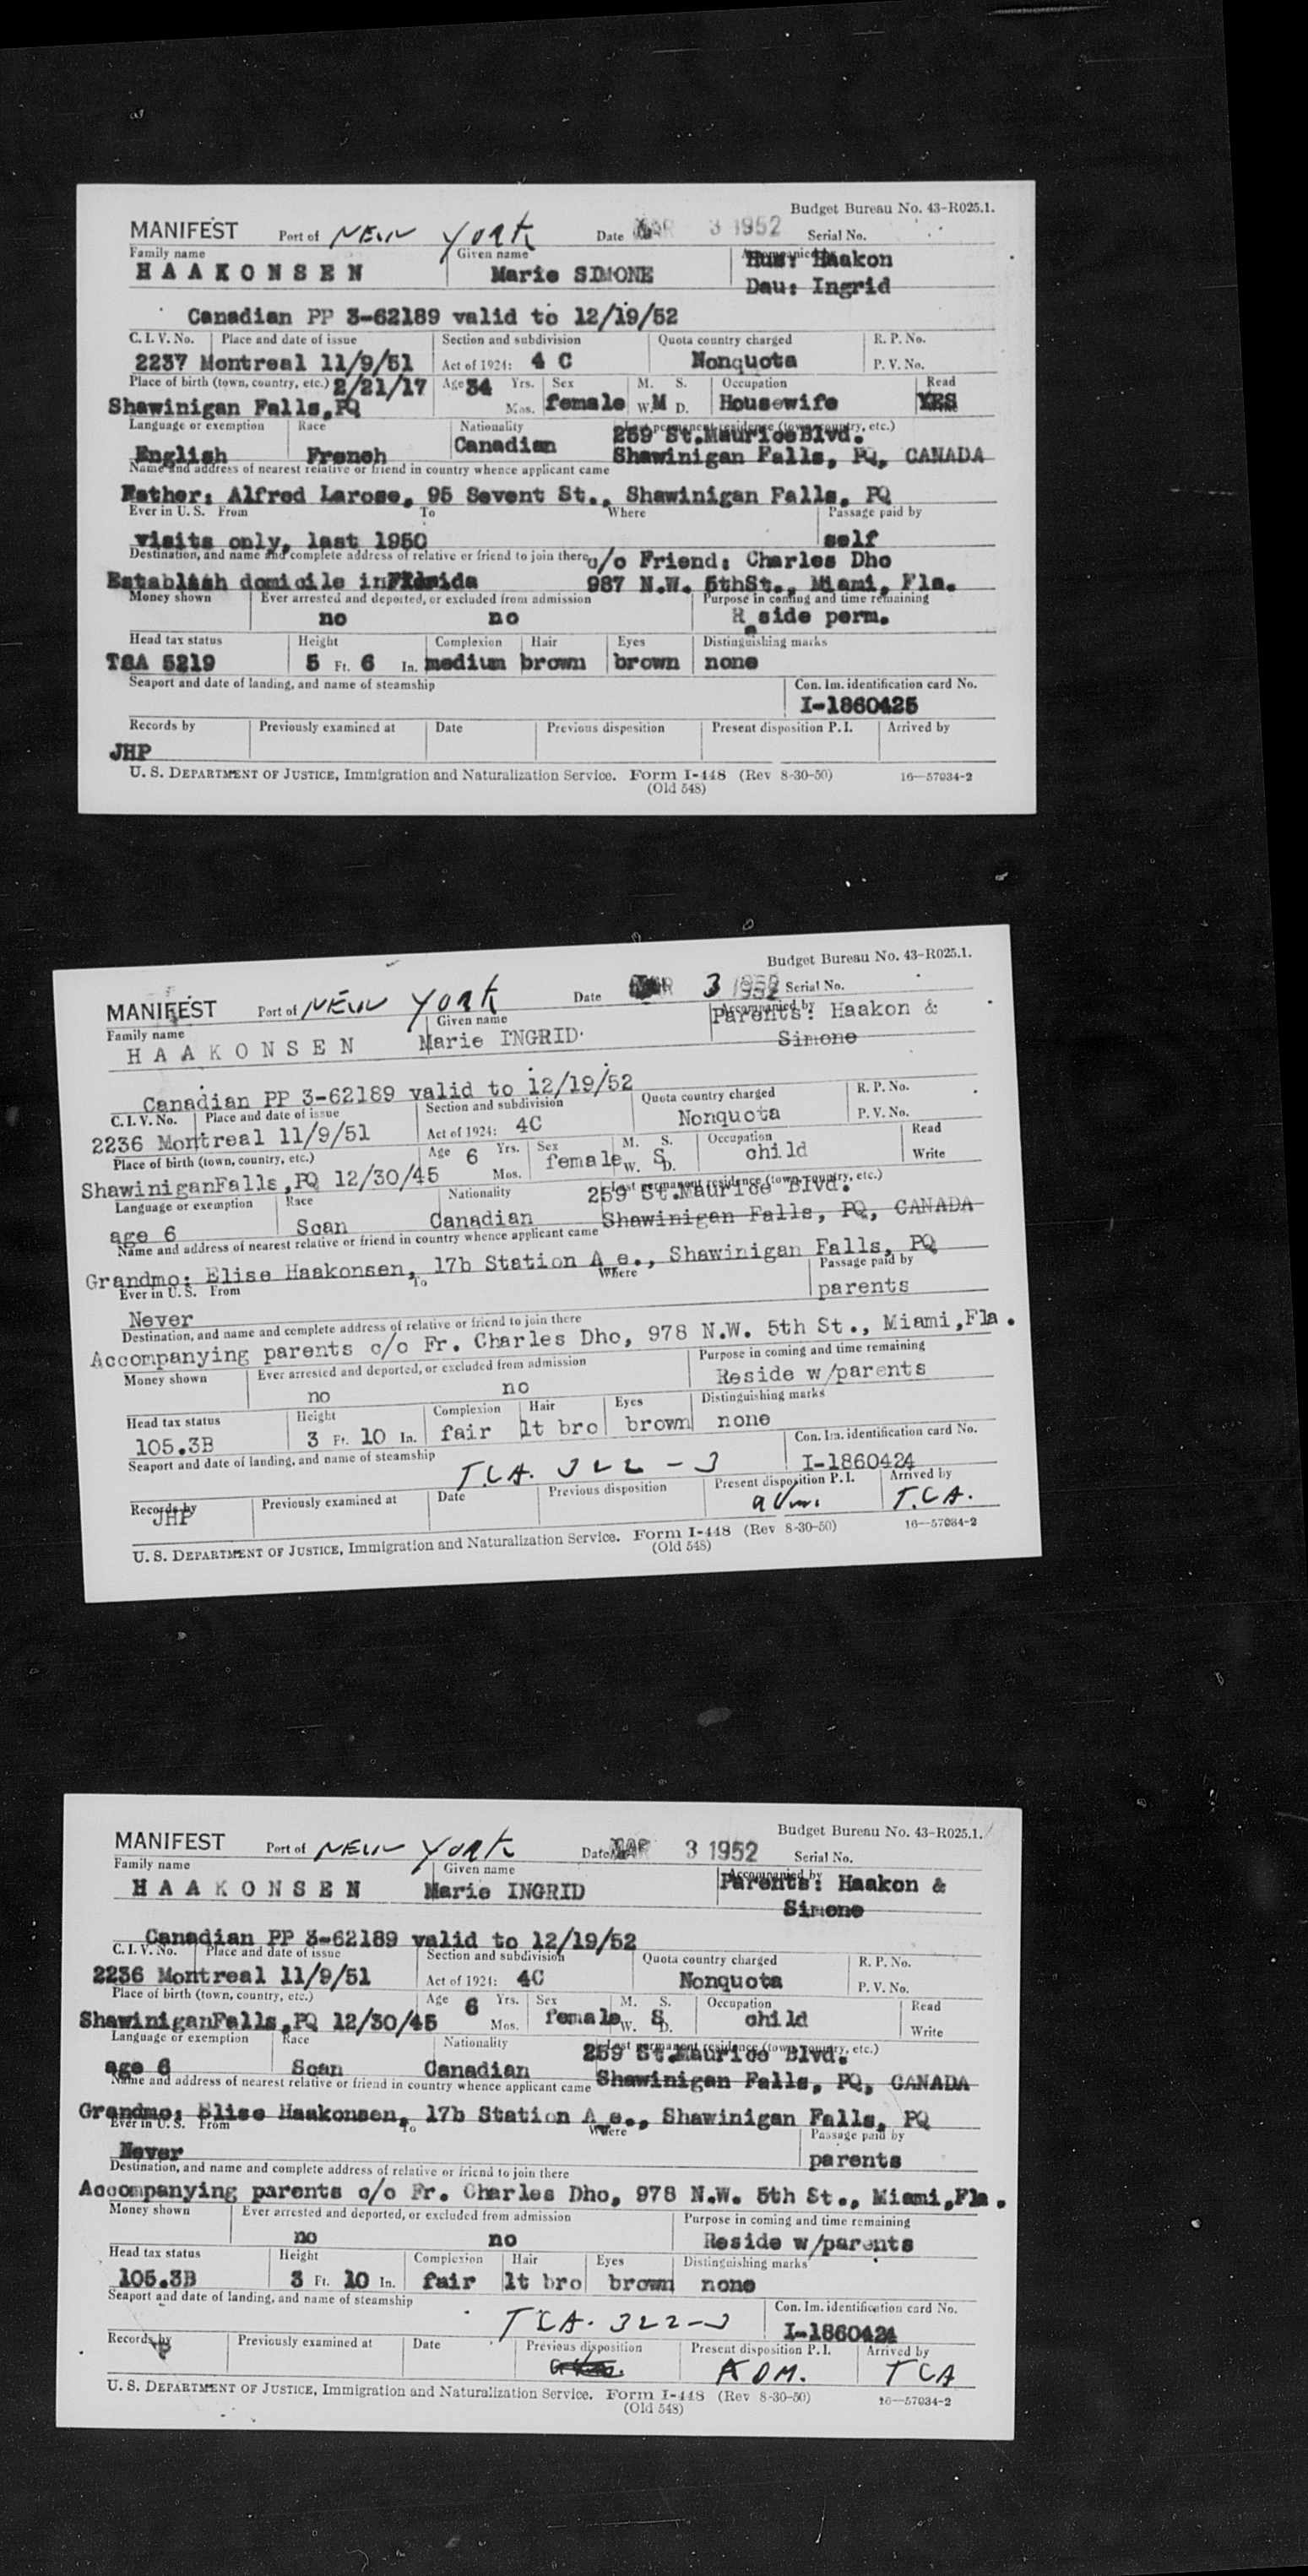 Budget Bureau No. 43-R025.1.
MANIFEST Port of NEW YORK Date MAR 3 1952 Serial No.
Family name Given name Accompanied by
HAAKONSEN Marie SIMONE Hus: Haakon
Dau: Ingrid
Canadian PP 3-62189 valid to 12/19/52
C. I. V. No. Place and date of issue Section and subdivision Quota country charged R. P. No.
2237 Montreal 11/9/51 Act of 1924: 4 C Nonquota P. V. No.
Place of birth (town, country, etc.) 2/21/17 Age 34 Yrs. Sex M. S. Occupation Read
Shawinigan Falls,PQ Mos. female W. M D. Housewife YES
Language or exemption Race Nationality Last permanent residence (town, country, etc.)
259 St.MauriceBlvd.
English French Canadian Shawinigan Falls, PQ, CANADA
Name and address of nearest relative or friend in country whence applicant came
Father: Alfred Larose, 95 Sevent St., Shawinigan Falls, PQ
Ever in U. S. From To Where Passage paid by
visits only, last 1950 self
Destination, and name and complete address of relative or friend to join there c/o Friend: Charles Dho
Establish domicile inFlorida 987 N.W. 5thSt., Miami, Fla.
Money shown Ever arrested and deported, or excluded from admission Purpose in coming and time remaining
no no R side perm.
Head tax status Height Complexion Hair Eyes Distinguishing marks
TSA 5219 5 Ft. 6 In. medium brown brown none
Seaport and date of landing, and name of steamship Con. Im. identification card No.
I-1860425
Records by Previously examined at Date Previous disposition Present disposition P. I. Arrived by
JHP
U. S. DEPARTMENT OF JUSTICE, Immigration and Naturalization Service. Form I-448 (Rev 8-30-50) 16—57034-2
(Old 548)
Budget Bureau No. 43-R025.1.
MANIFEST Port of NEW YORK Date MAR 3 1952 Serial No.
Family name Given name Accompanied by
HAAKONSEN Marie INGRID Parents: Haakon &
Simone
Canadian PP 3-62189 valid to 12/19/52
C. I. V. No. Place and date of issue Section and subdivision Quota country charged R. P. No.
2236 Montreal 11/9/51 Act of 1924: 4C Nonquota P. V. No.
Place of birth (town, country, etc.) Age 6 Yrs. Sex M. S. Occupation Read
ShawiniganFalls,PQ 12/30/45 Mos. female W. S D. child Write
Language or exemption Race Nationality Last permanent residence (town, country, etc.)
259 St.Maurice Blvd.
age 6 Scan Canadian Shawinigan Falls, PQ, CANADA
Name and address of nearest relative or friend in country whence applicant came
Grandmo: Elise Haakonsen, 17b Station A e., Shawinigan Falls, PQ
Ever in U. S. From To Where Passage paid by
Never parents
Destination, and name and complete address of relative or friend to join there
Accompanying parents c/o Fr. Charles Dho, 978 N.W. 5th St., Miami,Fla.
Money shown Ever arrested and deported, or excluded from admission Purpose in coming and time remaining
no no Reside w/parents
Head tax status Height Complexion Hair Eyes Distinguishing marks
105.3B 3 Ft. 10 In. fair lt bro brown none
Seaport and date of landing, and name of steamship Con. Im. identification card No.
T.C.A. 322-3 I-1860424
Records by Previously examined at Date Previous disposition Present disposition P. I. Arrived by
JHP adm. T.C.A.
U. S. DEPARTMENT OF JUSTICE, Immigration and Naturalization Service. Form I-448 (Rev 8-30-50) 16—57034-2
(Old 548)
Budget Bureau No. 43-R025.1.
MANIFEST Port of NEW YORK Date MAR 3 1952 Serial No.
Family name Given name Accompanied by
HAAKONSEN Marie INGRID Parents: Haakon &
Simone
Canadian PP 3-62189 valid to 12/19/52
C. I. V. No. Place and date of issue Section and subdivision Quota country charged R. P. No.
2236 Montreal 11/9/51 Act of 1924: 4C Nonquota P. V. No.
Place of birth (town, country, etc.) Age 6 Yrs. Sex M. S. Occupation Read
ShawiniganFalls,PQ 12/30/45 Mos. female W. S D. child Write
Language or exemption Race Nationality Last permanent residence (town, country, etc.)
259 St.Maurice Blvd.
age 6 Scan Canadian Shawinigan Falls, PQ, CANADA
Name and address of nearest relative or friend in country whence applicant came
Grandmo: Elise Haakonsen, 17b Station A e., Shawinigan Falls, PQ
Ever in U. S. From To Where Passage paid by
Never parents
Destination, and name and complete address of relative or friend to join there
Accompanying parents c/o Fr. Charles Dho, 978 N.W. 5th St., Miami,Fla.
Money shown Ever arrested and deported, or excluded from admission Purpose in coming and time remaining
no no Reside w/parents
Head tax status Height Complexion Hair Eyes Distinguishing marks
105.3B 3 Ft. 10 In. fair lt bro brown none
Seaport and date of landing, and name of steamship Con. Im. identification card No.
TCA. 322-3 I-1860424
Records by Previously examined at Date Previous disposition Present disposition P. I. Arrived by
ADM. TCA
U. S. DEPARTMENT OF JUSTICE, Immigration and Naturalization Service. Form I-448 (Rev 8-30-50) 16—57034-2
(Old 548)